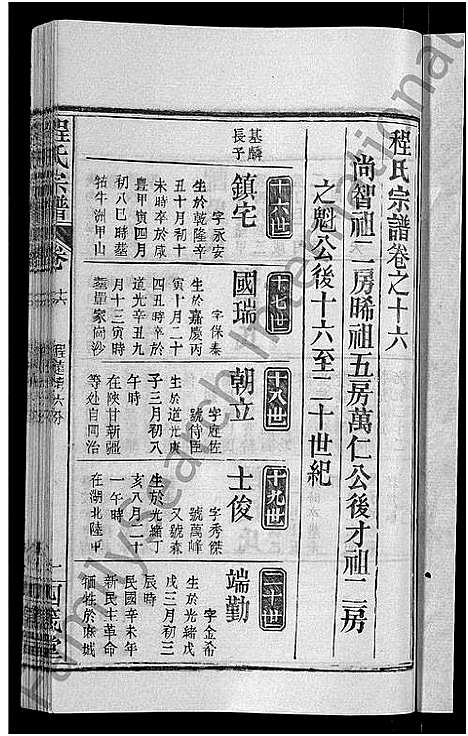 程氏宗譜卷之十六
尚智祖二房晞祖五房萬仁公後才祖二房
之魁公後十六至二十世紀
十六世
基麟
長子
鎮宅
字永安
生於乾隆辛
丑十月初十
未時卒於咸
豐甲寅四月
初八巳時墓
牯牛洲甲山
十七世
國瑞
字保泰
生於嘉慶丙
寅十月二十
四丑時卒於
道光辛丑九
月十三寅時
家向沙
十八世
朝立
字廷佐
號侍臣
生於道光庚
子三月初八
午時
在陝甘新疆
等处自同治
十九世
士俊
字秀傑
號萬峰
又號森
生於光緒丁
亥八月二十
一午時
在湖北陸軍
二十世
端勤
字金希
生於光緒戊
戌三月初三
辰時
民國辛未年
新民主革命
犧牲於麻城
程氏宗譜
卷十六
FamilySearch International